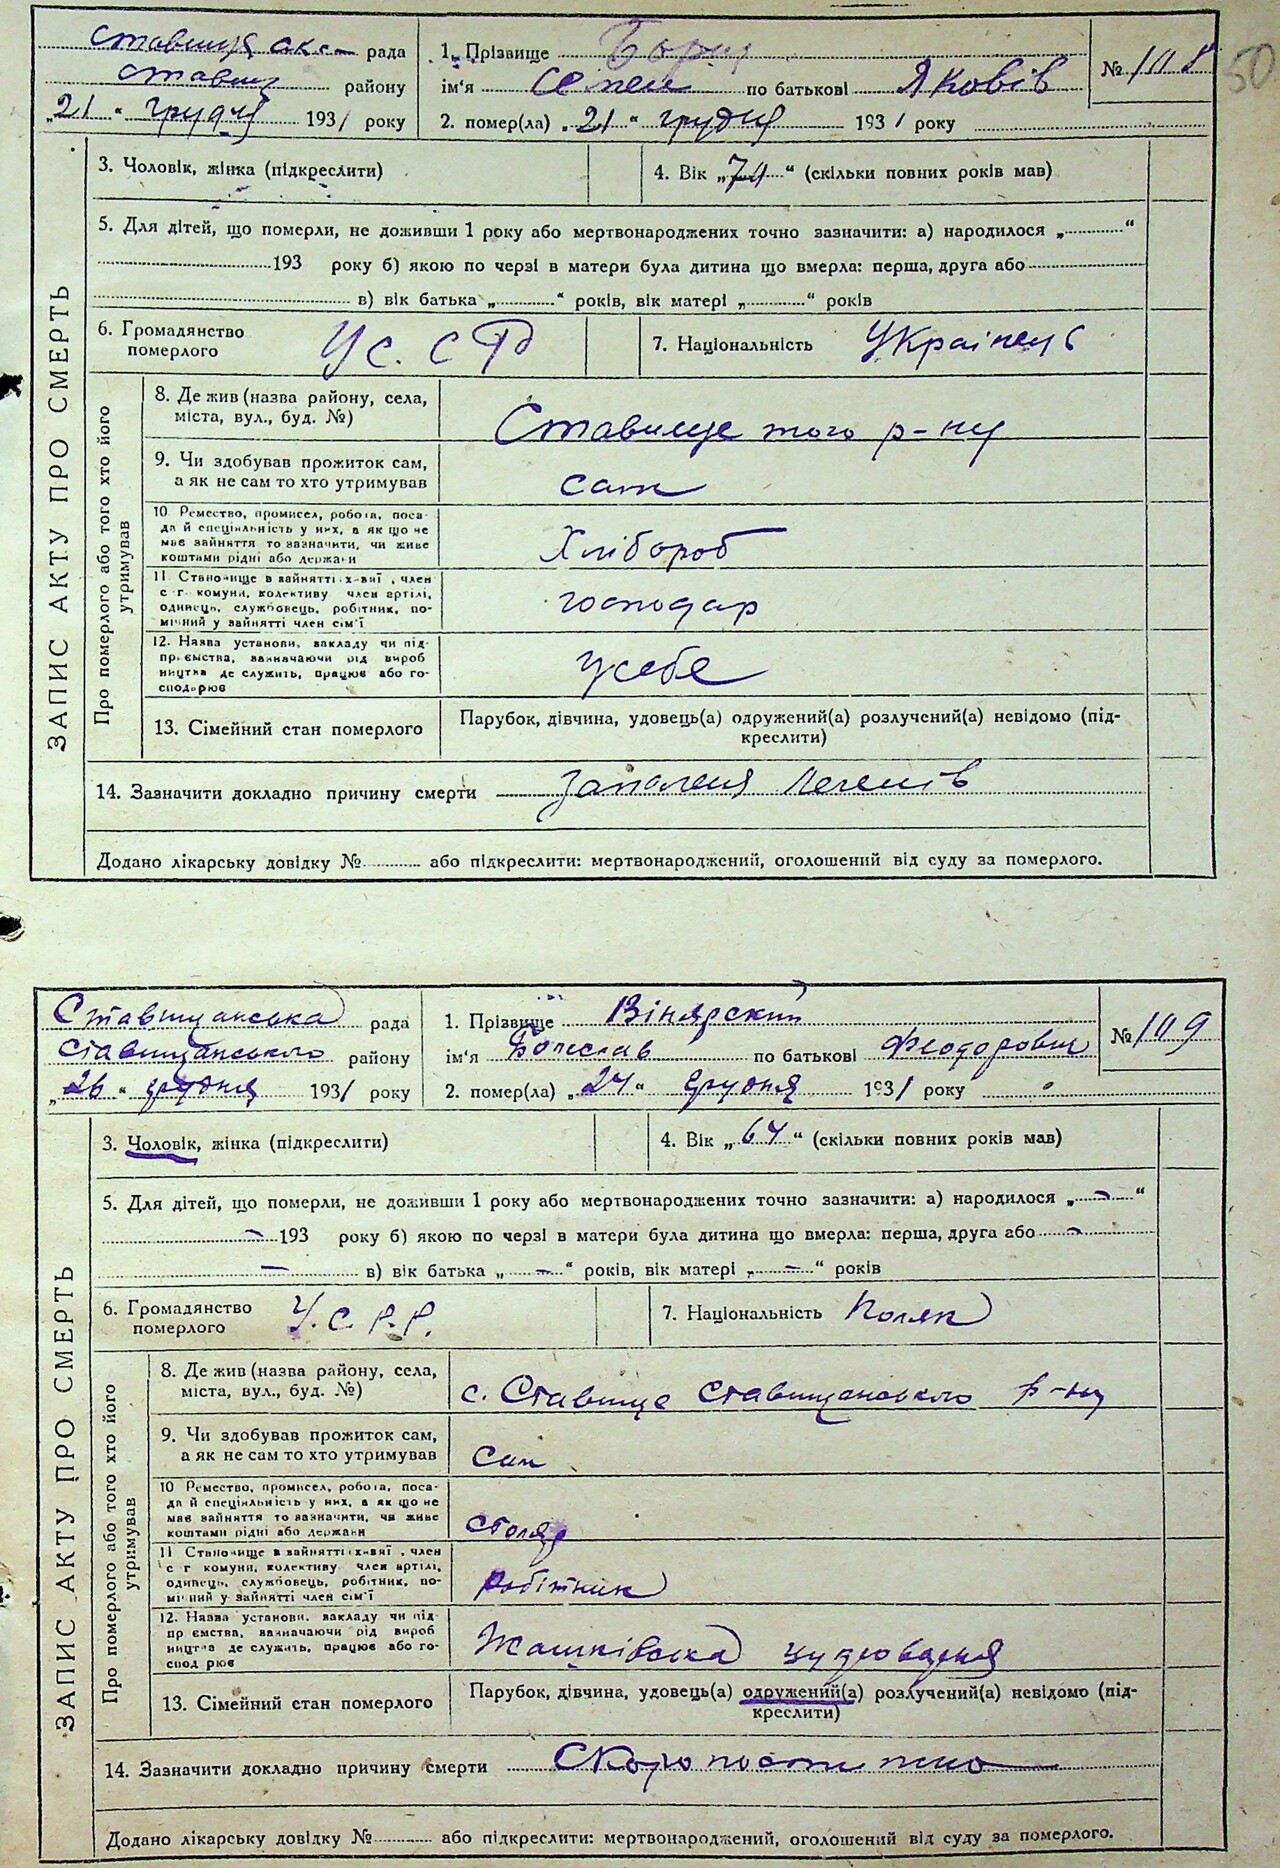 50
рада
району
"21" грудня 1931 року
1. Прізвище
ім'я Семен по батькові Яковів
2. помер(ла) "21" грудня 1931 року
№ 108
3. Чоловік, жінка (підкреслити)
4. Вік "74" (скільки повних років мав)
5. Для дітей, що померли, не доживши 1 року або мертвонароджених точно зазначити: а) народилося „ “
193 року б) якою по черзі в матери була дитина що вмерла: перша, друга або
в) вік батька „ “ років, вік матері „ “ років
6. Громадянство
померлого
УС.СР
7. Національність Українець
ЗАПИС АКТУ ПРО СМЕРТЬ
Про померлого або того хто його
утримував
8. Де жив (назва району, села,
міста, вул., буд. №)
Ставище того р-ну
9. Чи здобував прожиток сам,
а як не сам то хто утримував
сам
10 Ремество, промисел, робота, поса-
да й спеціяльність у них, а як що не
має зайняття то зазначити, чи живе
коштами рідні або держави
Хлібороб
11 Становище в зайнятті: х-ваї, член
с г комуни, колективу член артілі,
одинець, службовець, робітник, по-
мічний у зайнятті член сім'ї
господар
12. Назва установи, закладу чи під-
приємства, зазначаючи рід вироб
ництва де служить, працює або го-
сподарює
У себе
13. Сімейний стан померлого
Парубок, дівчина, удовець(а) одружений(а) розлучений(а) невідомо (під-
креслити)
14. Зазначити докладно причину смерти запаления легенів
Додано лікарську довідку № або підкреслити: мертвонароджений, оголошений від суду за померлого.
Ставищанська рада
Ставищанського району
"26" грудня 1931 року
1. Прізвище Вінярский
ім'я Болеслав по батькові Феодорович
2. помер(ла) "24" грудня 1931 року
№ 109
3. Чоловік, жінка (підкреслити)
4. Вік "64" (скільки повних років мав)
5. Для дітей, що померли, не доживши 1 року або мертвонароджених точно зазначити: а) народилося „ – “
– 193 року б) якою по черзі в матери була дитина що вмерла: перша, друга або –
– в) вік батька „ – “ років, вік матері „ – “ років
6. Громадянство
померлого
У.С.Р.Р.
7. Національність Поляк
ЗАПИС АКТУ ПРО СМЕРТЬ
Про померлого або того хто його
утримував
8. Де жив (назва району, села,
міста, вул., буд. №)
с. Ставище Ставищанського р-ну
9. Чи здобував прожиток сам,
а як не сам то хто утримував
сам
10 Ремество, промисел, робота, поса-
да й спеціяльність у них, а як що не
має зайняття то зазначити, чи живе
коштами рідні або держави
столяр
11 Становище в зайнятті: х-ваї, член
с г комуни, колективу член артілі,
одинець, службовець, робітник, по-
мічний у зайнятті член сім'ї
робітник
12. Назва установи, закладу чи під
приємства, зазначаючи рід вироб
ництва де служить, працює або го-
сподарює
Жашківська
13. Сімейний стан померлого
Парубок, дівчина, удовець(а) одружений(а) розлучений(а) невідомо (під-
креслити)
14. Зазначити докладно причину смерти Скоропостижно
Додано лікарську довідку № або підкреслити: мертвонароджений, оголошений від суду за померлого.